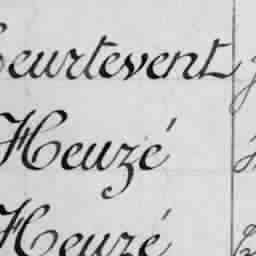 Heurtevent
Heuzé
Heuzé